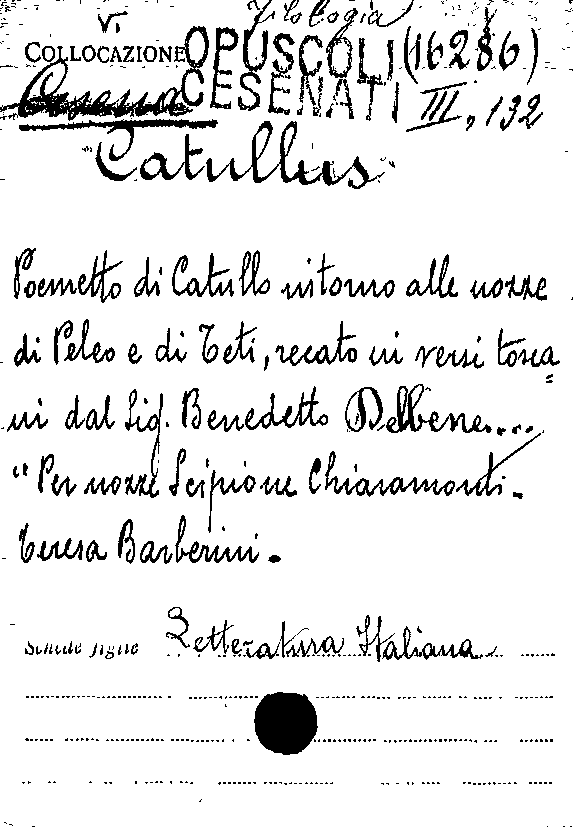 Filologia
VI
COLLOCAZIONE OPUSCOLI (16286)
Cesena CESENATI III, 132
Catullus
Poemetto di Catullo intorno alle nozze
di Peleo e di Teti, recato in versi tosca=
ni dal Sig. Benedetto Delbene....
"Per nozze Scipione Chiaramonti-
Teresa Barberini.
Schede figlie Letteratura Italiana